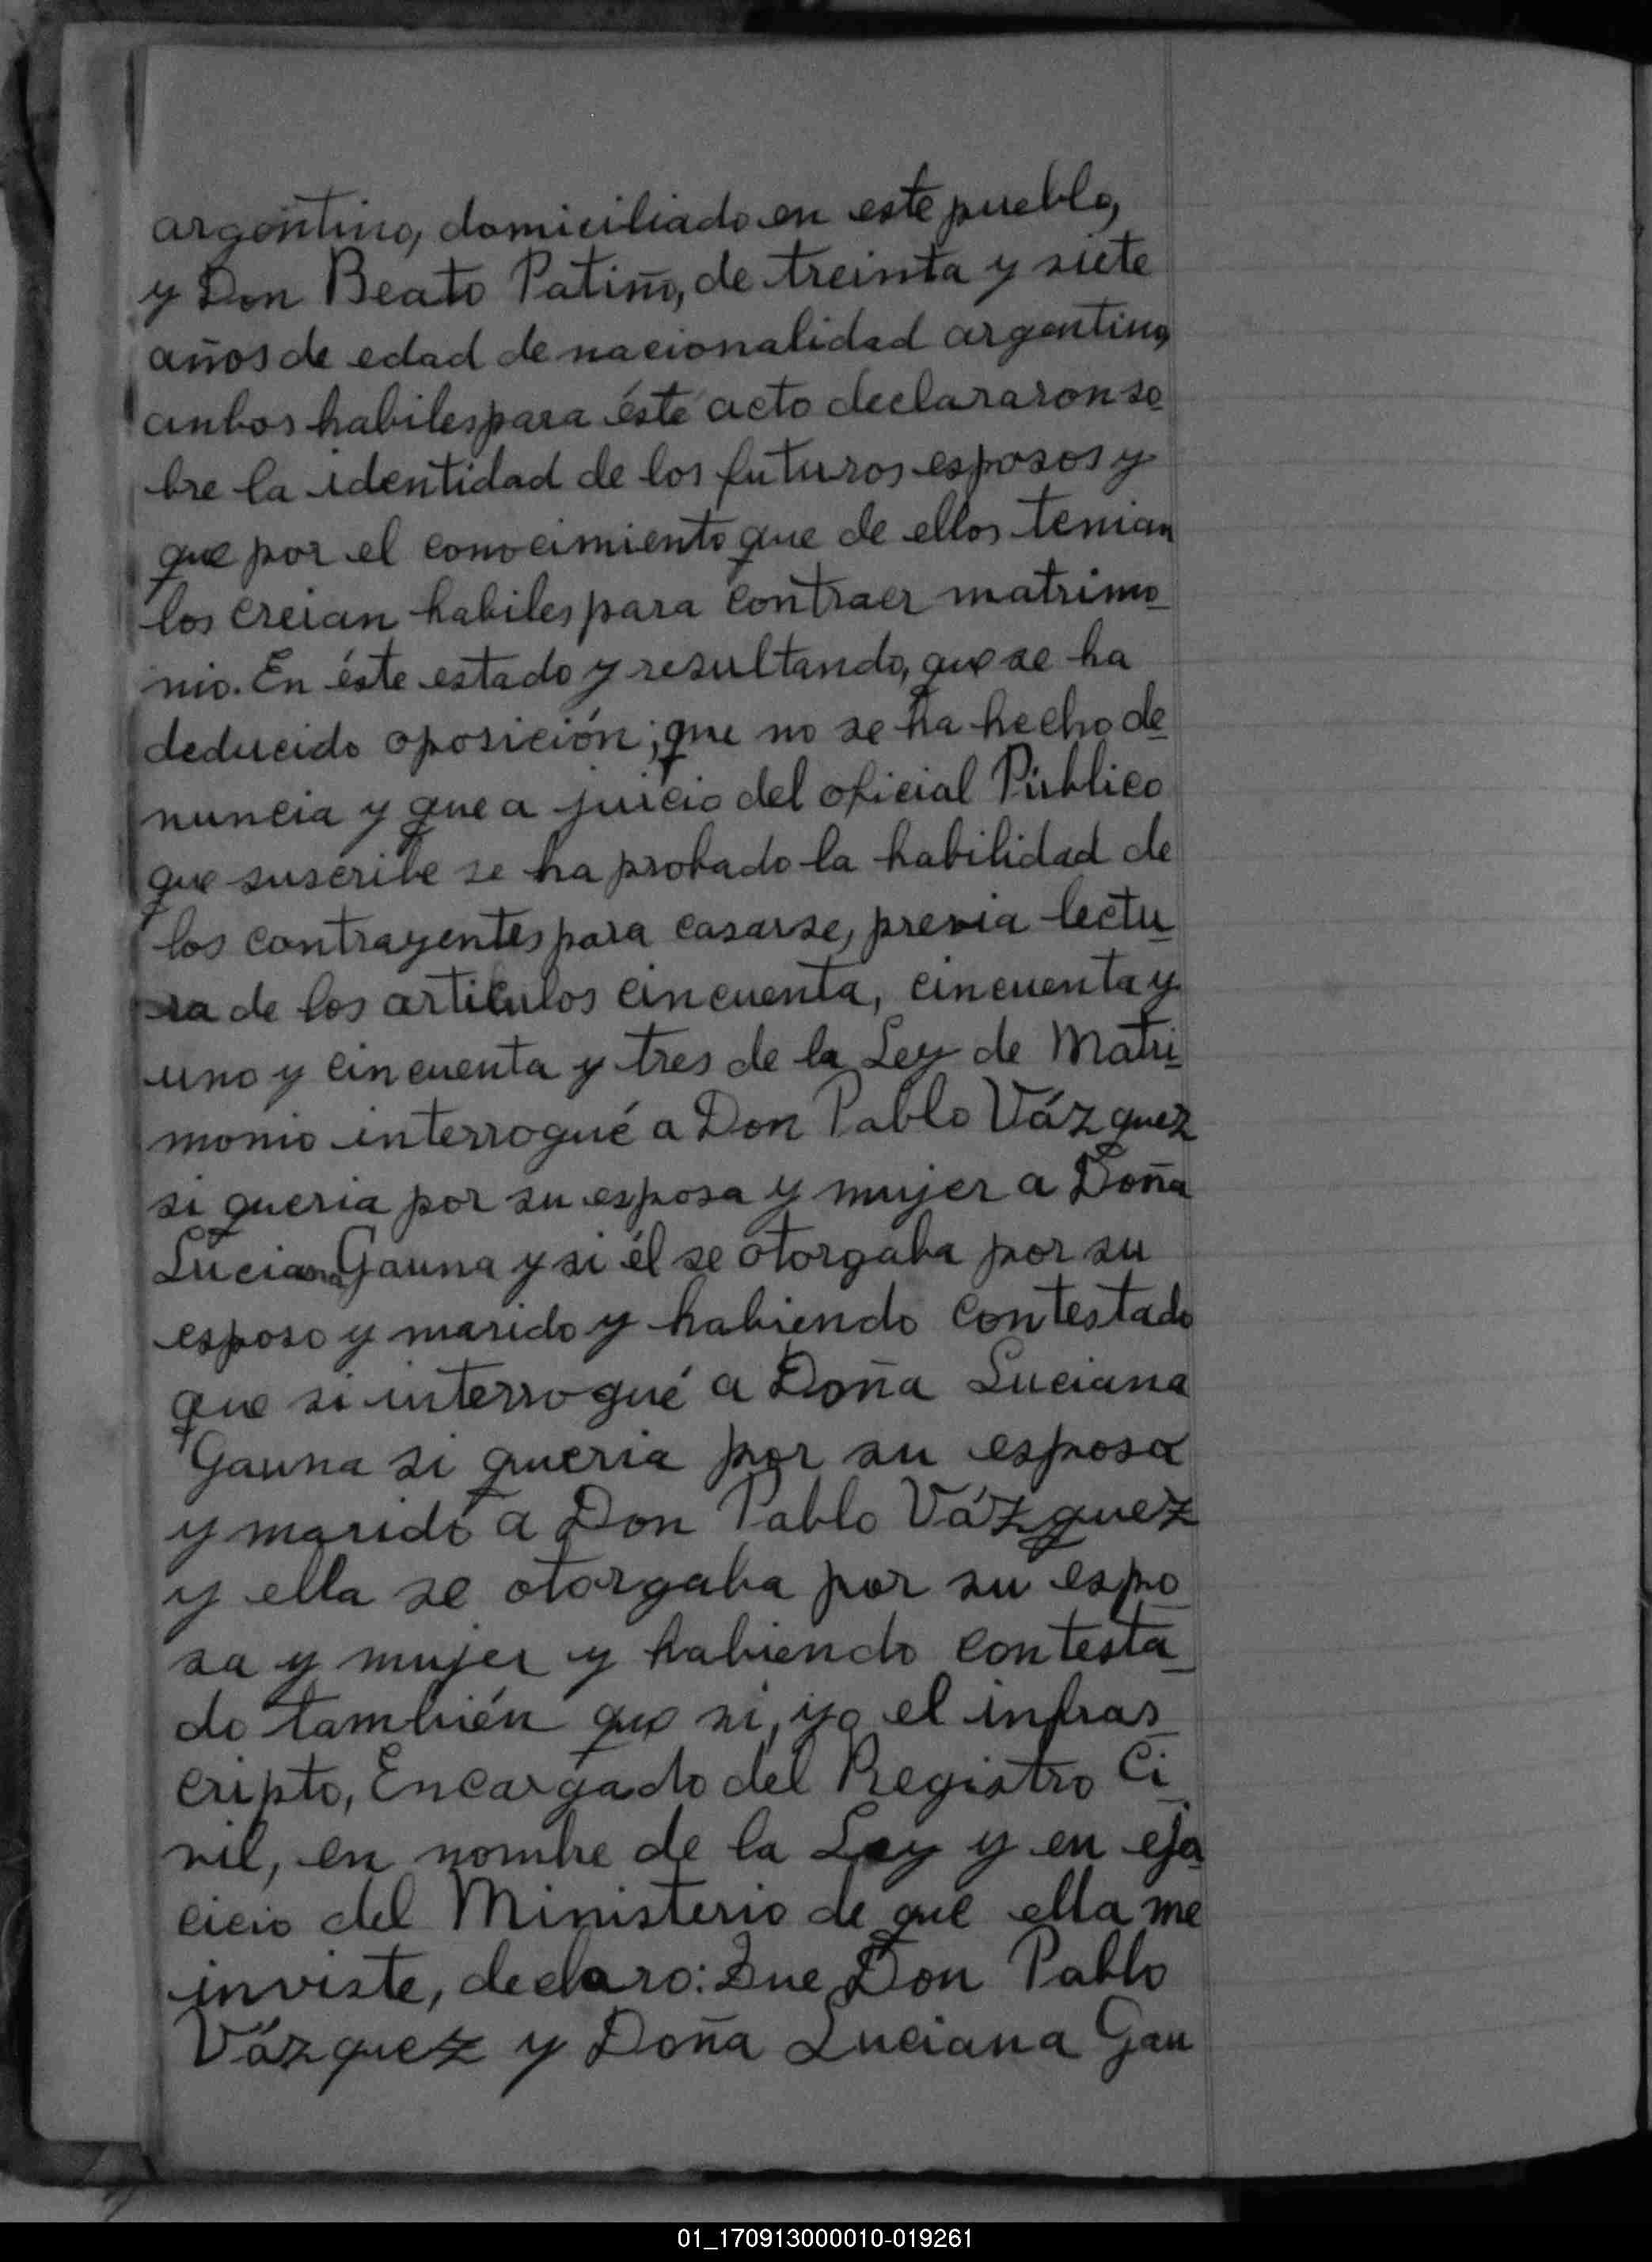 argentino, domiciliado en este pueblo,
y Don Beato Patiño, de treinta y siete
años de edad de nacionalidad argentino,
anbos habiles para éste acto declararon so
bre la identidad de los futuros esposos y
que por el conocimiento que de ellos tenian
los creian habiles para contraer matrimo
nio. En éste estado y resultando, que se ha
deducido oposición; que no se ha hecho de
nuncia y que a juicio del oficial Público
que suscribe se ha probado la habilidad de
los contrayentes para casarse, previa lectu
ra de los articulos cincuenta, cincuenta y
uno y cincuenta y tres de la Ley de Matri
monio interrogué a Don Pablo Vázquez
si queria por su esposa y mujer a Doña
Luciana Gauna y si él se otorgaba por su
esposo y marido y habiendo contestado
que si interrogué a Doña Luciana
Gauna si queria por su esposa
y marido a Don Pablo Vázquez
y ella se otorgaba por su espo
sa y mujer y habiendo contesta
do también que si, yo el infras
cripto, Encargado del Registro Ci
vil, en nombre de la Ley y en eje
cicio del Ministerio de que ella me
inviste, declaro: Que Don Pablo
Vázquez y Doña Luciana Gau
01_170913000010-019261